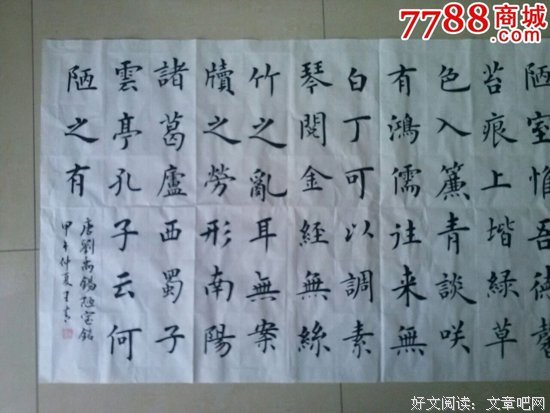 7788商城
.com
陋室惟吾德馨
苔痕上堦綠草
色入簾青談咲
有鴻儒往来無
白丁可以調素
琴閱金經無絲
竹之亂耳無案
牘之勞形南陽
諸葛廬西蜀子
雲亭孔子云何
陋之有
唐劉禹錫陋室銘
甲午仲夏
好文阅读：文章吧网